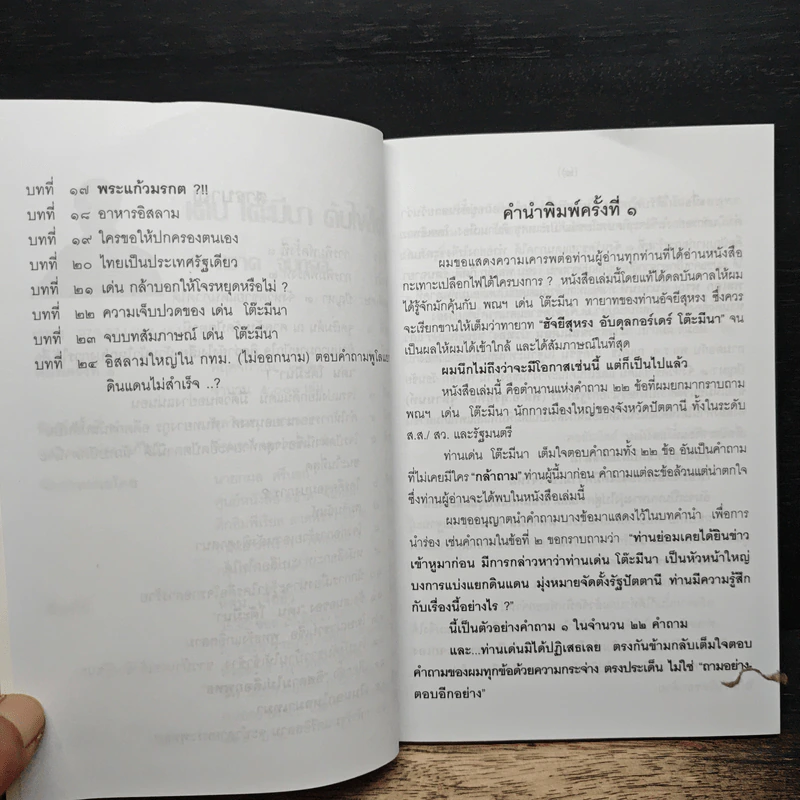 บทที่ ๑๗ พระแก้วมรกต ?!!
บทที่ ๑๘ อาหารอิสลาม
บทที่ ๑๙ ใครขอให้ปกครองตนเอง
บทที่ ๒๐ ไทยเป็นประเทศรัฐเดียว
บทที่ ๒๑ เด่น กล้าบอกให้โจรหยุดหรือไม่ ?
บทที่ ๒๒ ความเจ็บปวดของ เด่น โต๊ะมีนา
บทที่ ๒๓ จบบทสัมภาษณ์ เด่น โต๊ะมีนา
บทที่ ๒๔ อิสลามใหญ่ใน กทม. (ไม่ออกนาม) ตอบคำถามพูโลแยก
ดินแดนไม่สำเร็จ ..?
คำนำพิมพ์ครั้งที่ ๑
ผมขอแสดงความเคารพต่อท่านผู้อ่านทุกท่านที่ได้อ่านหนังสือ
กะเทาะเปลือกไฟใต้ใครบงการ ? หนังสือเล่มนี้โดยแท้ได้ดลบันดาลให้ผม
ได้รู้จักมักคุ้นกับ พณฯ เด่น โต๊ะมีนา ทายาทของท่านฮัจยีสุหรง ซึ่งควร
จะเรียกขานให้เต็มว่าทายาท "ฮัจยีสุหรง อับดุลกอร์เดร์ โต๊ะมีนา" จน
เป็นผลให้ผมได้เข้าใกล้ และได้สัมภาษณ์ในที่สุด
ผมนึกไม่ถึงว่าจะมีโอกาสเช่นนี้ แต่ก็เป็นไปแล้ว
หนังสือเล่มนี้ คือตำนานแห่งคำถาม ๒๒ ข้อที่ผมยกมากราบถาม
พณฯ เด่น โต๊ะมีนา นักการเมืองใหญ่ของจังหวัดปัตตานี ทั้งในระดับ
ส.ส./ สว. และรัฐมนตรี
ท่านเด่น โต๊ะมีนา เต็มใจตอบคำถามทั้ง ๒๒ ข้อ อันเป็นคำถาม
ที่ไม่เคยมีใคร "กล้าถาม" ท่านผู้นี้มาก่อน คำถามแต่ละข้อล้วนแต่น่าตกใจ
ซึ่งท่านผู้อ่านจะได้พบในหนังสือเล่มนี้
ผมขออนุญาตนำคำถามบางข้อมาแสดงไว้ในบทคำนำ เพื่อการ
นำร่อง เช่นคำถามในข้อที่ ๒ ขอกราบถามว่า "ท่านย่อมเคยได้ยินข่าว
เข้าหูมาก่อน มีการกล่าวหาว่าท่านเด่น โต๊ะมีนา เป็นหัวหน้าใหญ่
บงการแบ่งแยกดินแดน มุ่งหมายจัดตั้งรัฐปัตตานี ท่านมีความรู้สึก
กับเรื่องนี้อย่างไร ?"
นี้เป็นตัวอย่างคำถาม ๑ ในจำนวน ๒๒ คำถาม
และ...ท่านเด่นมิได้ปฏิเสธเลย ตรงกันข้ามกลับเต็มใจตอบ
คำถามของผมทุกข้อด้วยความกระจ่าง ตรงประเด็น ไม่ใช่ "ถามอย่าง
ตอบอีกอย่าง"